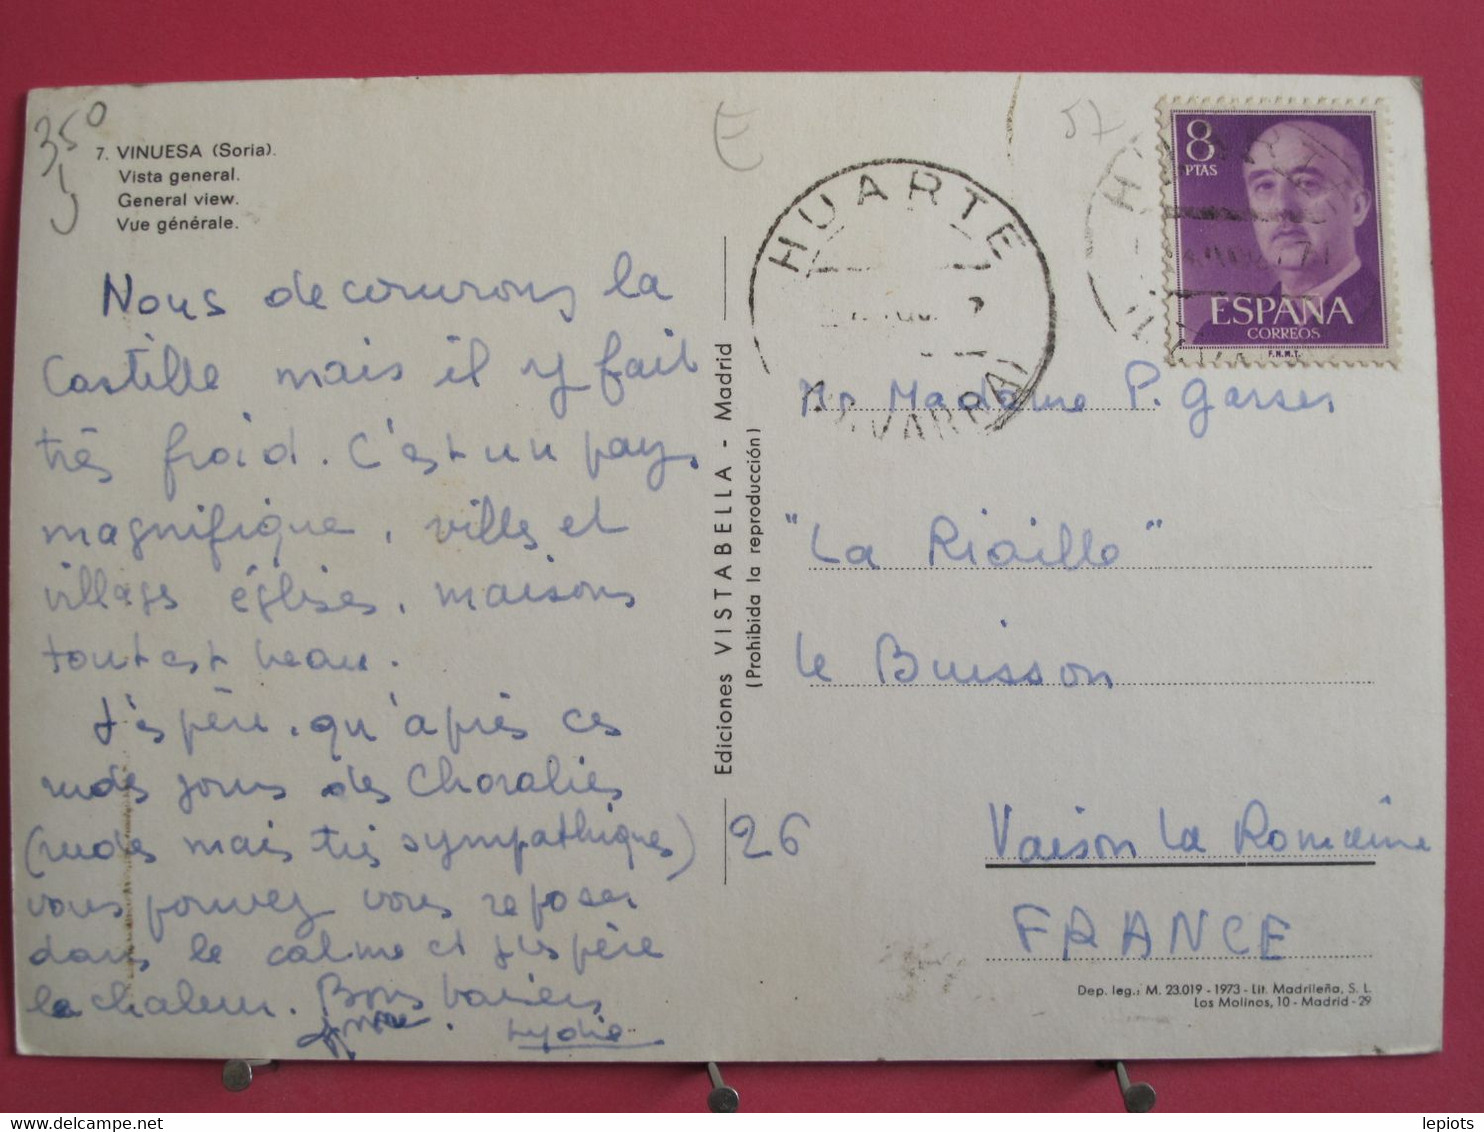 350
7. VINUESA (Soria).
Vista general.
General view.
Vue générale.
Nous decouvrons la
Castille mais il y fait
très froid. C'est un pays
magnifique, villes et
villages églises, maisons
tout est beau.
J'espère, qu'après ces
rudes jours des Choralies
(rudes mais très sympathiques)
vous pouvez vous reposer
dans le calme et j'espère
la chaleur. Bons baisers
Lydie
Ediciones VISTABELLA - Madrid
(Prohibida la reproducción)
E
57
HUARTE
NAVARRA
8
PTAS
ESPAÑA
CORREOS
F.N.M.T.
Mr Madame P. Garses
"La Riaille"
le Buisson
26
Vaison la Romaine
FRANCE
Dep. leg.: M. 23.019 - 1973 - Lit. Madrileña, S. L.
Los Molinos, 10 - Madrid - 29
lepiots